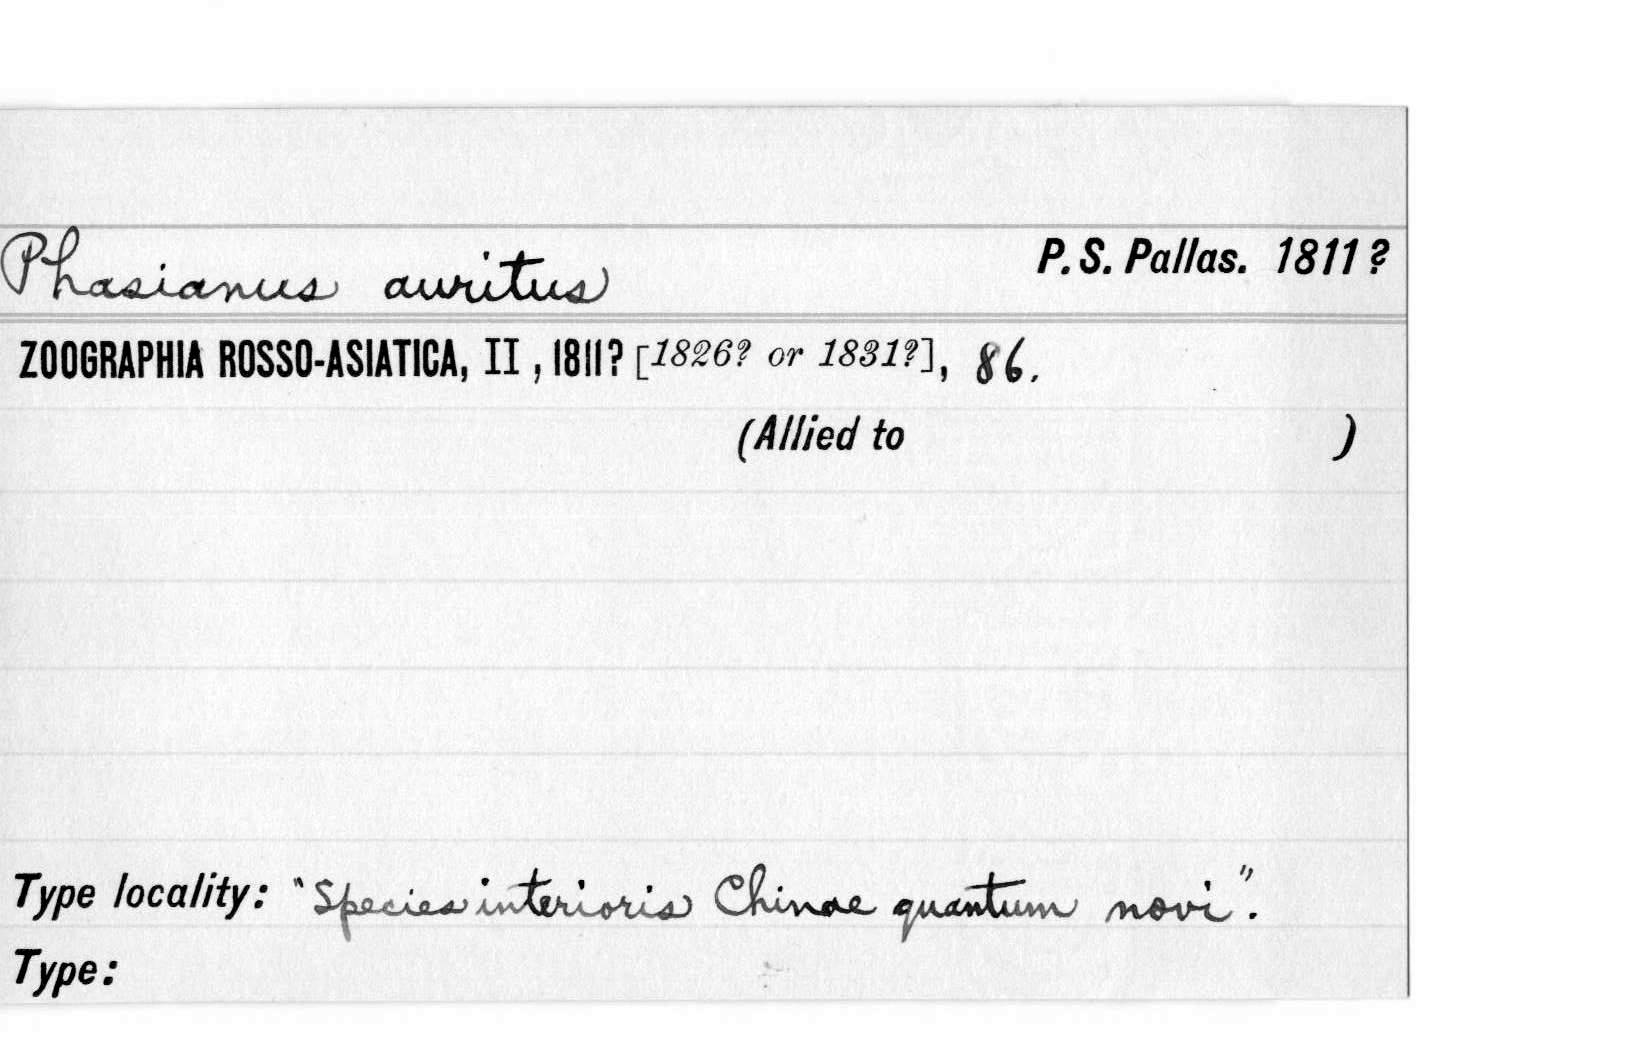 Phasianus auritus P. S. Pallas. 1811?
ZOOGRAPHIA ROSSO-ASIATICA, II, 1811? [1826? or 1831?], 86.
(Allied to )
Type locality: "Species interioris Chinae quantum novi".
Type: